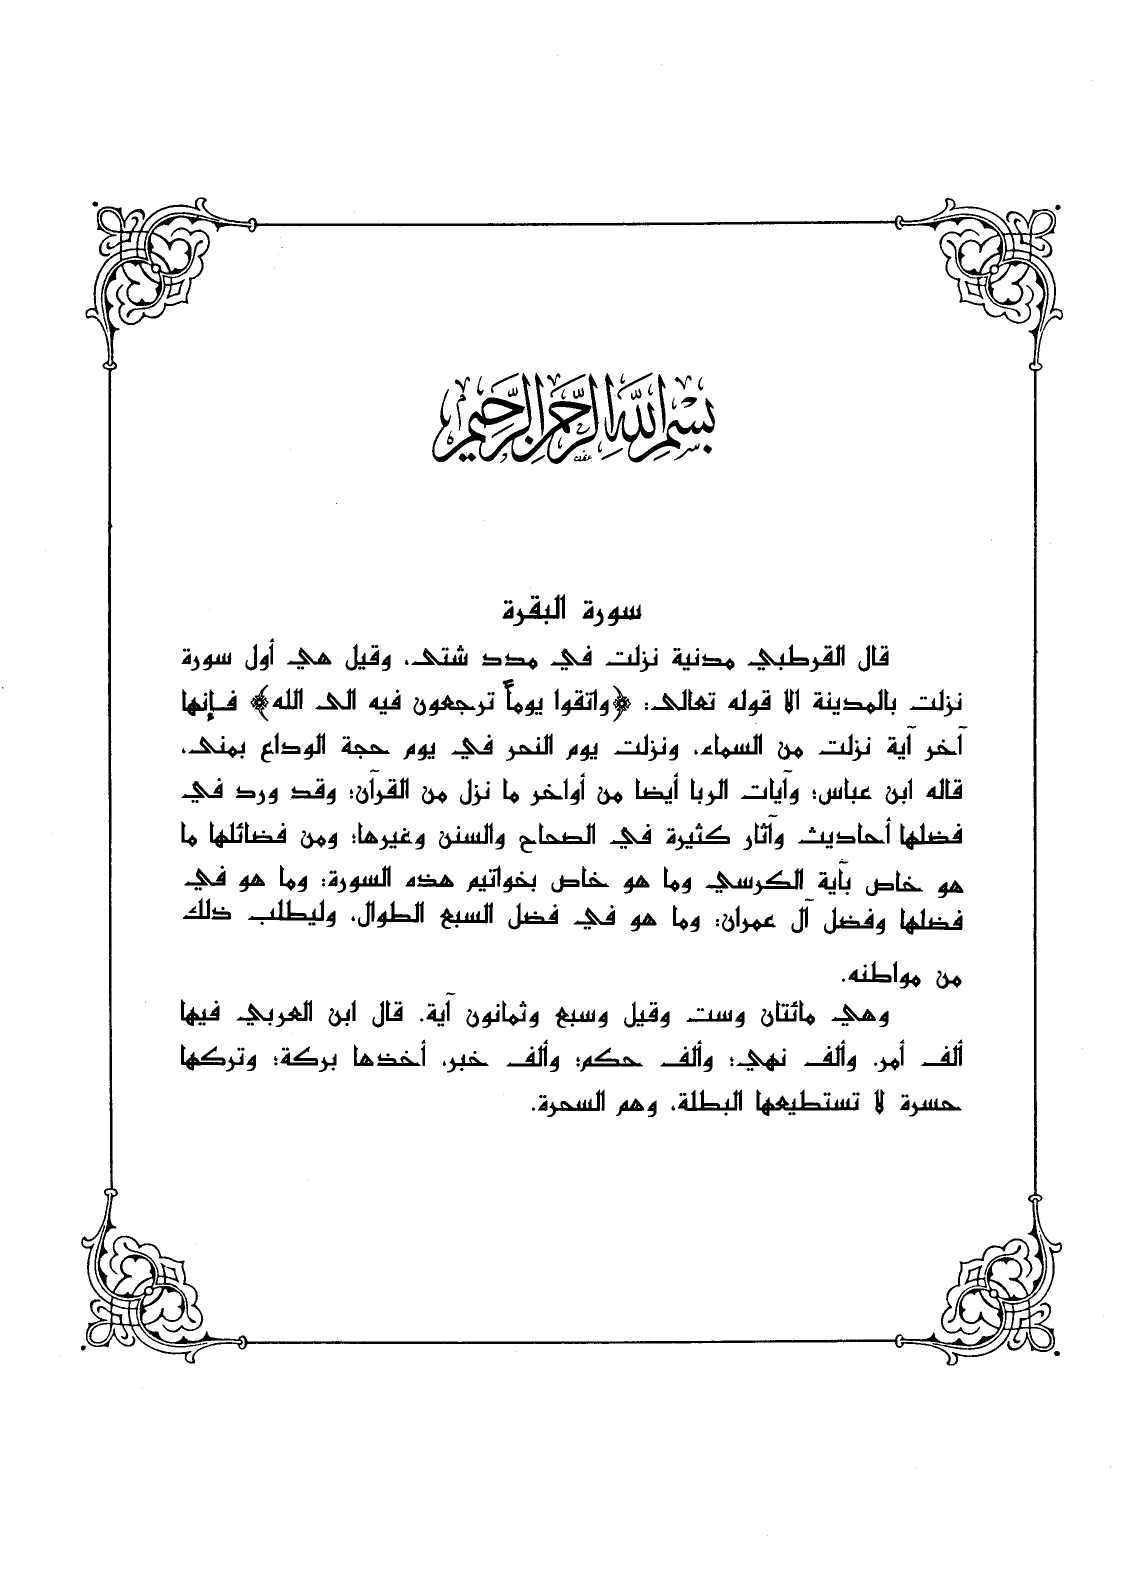 بسم الله الرحمن الرحيم
سورة البقرة
قال القرطبي مدنية نزلت في مدد شتى، وقيل هي أول سورة
نزلت بالمدينة الا قوله تعالى: ﴿واتقوا يوماً ترجعون فيه الى الله﴾ فإنها
آخر آية نزلت من السماء، ونزلت يوم النحر في يوم حجة الوداع بمنى،
قاله ابن عباس؛ وآيات الربا أيضا من أواخر ما نزل من القرآن؛ وقد ورد في
فضلها أحاديث وآثار كثيرة في الصحاح والسنن وغيرها؛ ومن فضائلها ما
هو خاص بآية الكرسي وما هو خاص بخواتيم هذه السورة؛ وما هو في
فضلها وفضل آل عمران؛ وما هو في فضل السبع الطوال، وليطلب ذلك
من مواطنه.
وهي مائتان وست وقيل وسبع وثمانون آية. قال ابن العربي فيها
ألف أمر، وألف نهي؛ وألف حكم؛ وألف خبر، أخذها بركة؛ وتركها
حسرة لا تستطيعها البطلة، وهم السحرة.